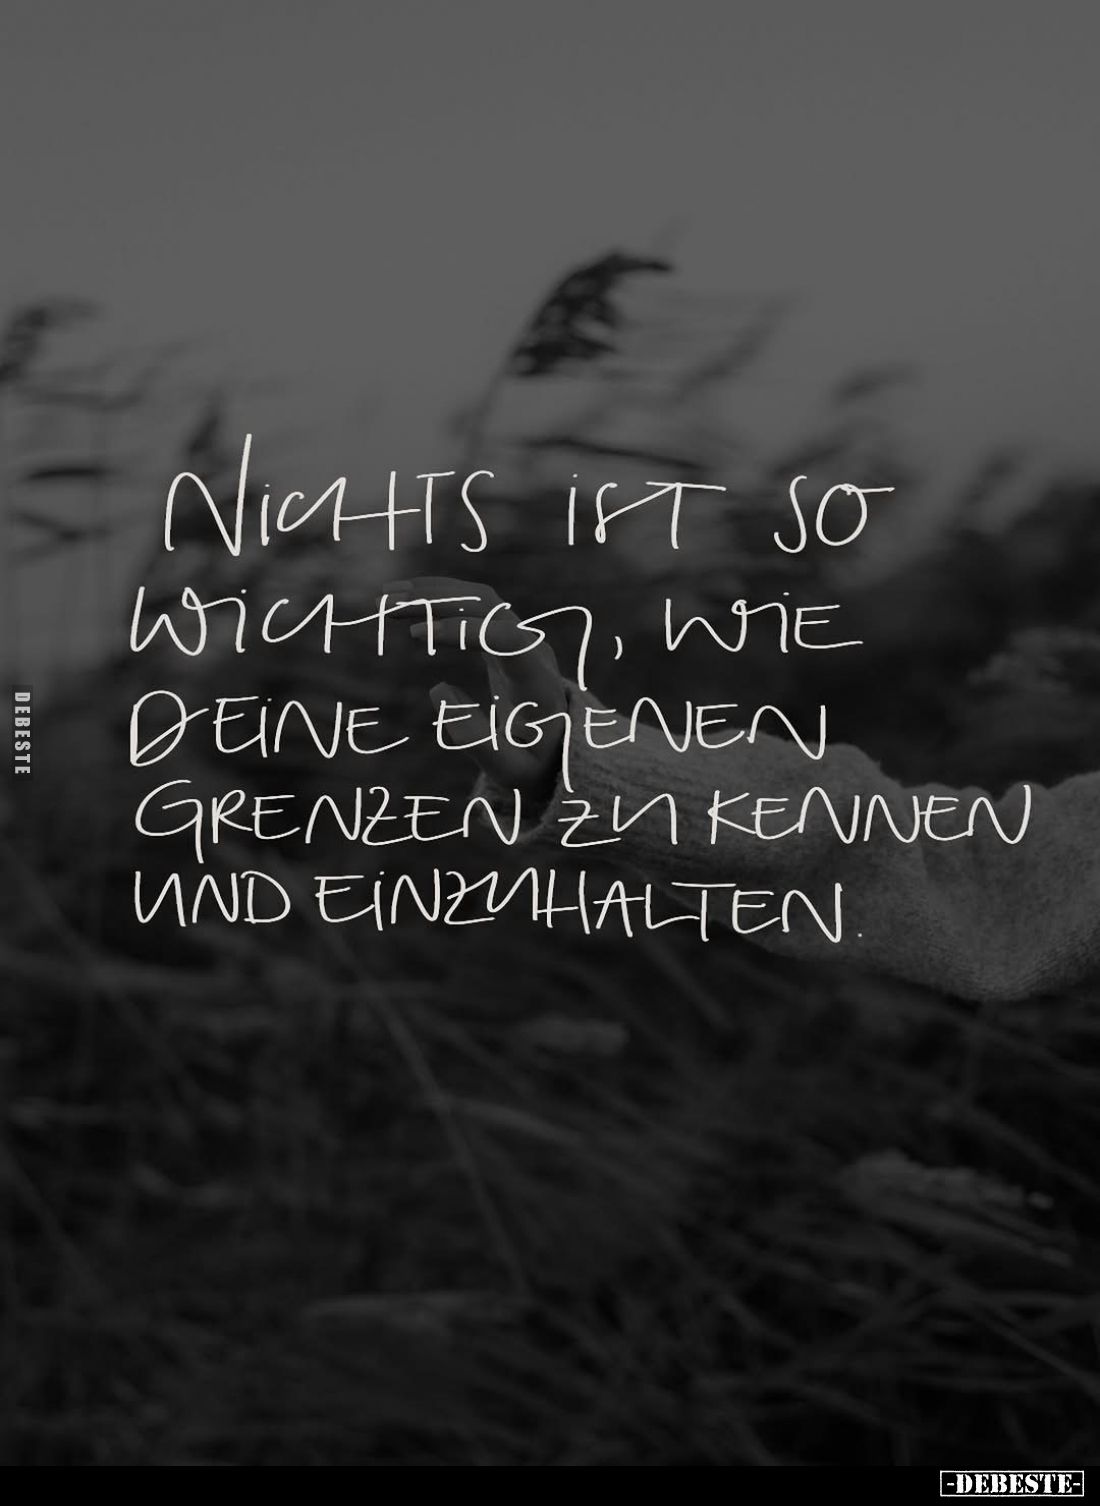 NICHTS IST SO
WICHTIG, WIE
DEINE EIGENEN
GRENZEN ZU KENNEN
UND EINZUHALTEN.
DEBESTE
-DEBESTE-